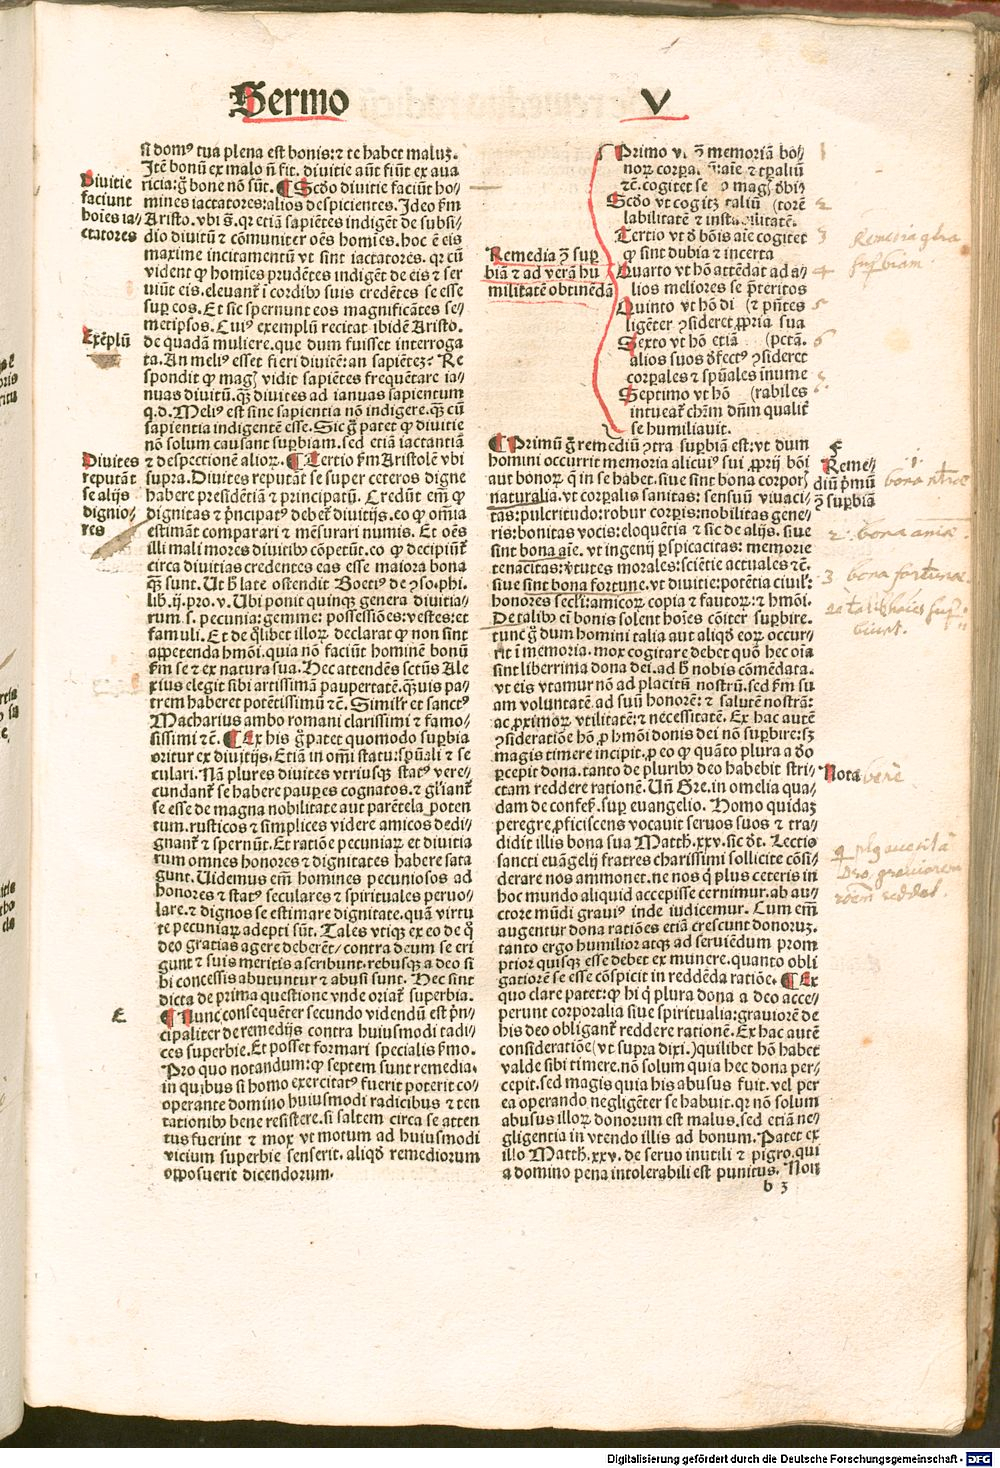 Sermo V
si domꝰ tua plena est bonis: ⁊ te habet maluʒ.
Itē bonū ex malo nō fit. diuitie aūt fiūt ex aua
ricia: g̊ bone nō sūt. Scđo diuitie faciūt ho-
mines iactatores: alios despicientes. Ideo ẜm
Aristo. vbi s̄. qꝛ etiā sapiētes indigēt de subsi-
dio diuitū ⁊ cōmuniter oēs homīes. hoc ē eis
maxime incitamentū vt sint iactatores. qꝛ cū
vident ꝙ homīes prudētes indigēt de eis ⁊ ser
uiūt eis. eleuant̄ ī cordibꝰ suis credētes se esse
suꝑ eos. Et sic spernunt eos magnificātes se-
metipsos. Cuiꝰ exemplū recitat ibidē Aristo.
de quadā muliere. que dum fuisset interroga
ta. An meliꝰ esset fieri diuitē: an sapiēteʒ? Re
spondit ꝙ magꝭ vidit sapiētes frequētare ia-
nuas diuitū. qʒ̄ diuites ad ianuas sapientum
q.d. Meliꝰ est sine sapientia nō indigere. qʒ̄ cū
sapientia indigentē esse. Sic g̊ patet ꝙ diuitie
nō solum causant suꝑbiam. sed etiā iactantiā
⁊ despectionē alioꝝ. Tertio ẜm Aristolē vbi
supra. Diuites reputāt se super ceteros digne
habere presidētiā ⁊ principatū. Credūt em̄ ꝙ
dignitas ⁊ pͥncipatꝰ debet̄ diuitijs. eo ꝙ om̄ia
estimāt comparari ⁊ mēsurari numis. Et oēs
illi mali mores diuitibꝰ cōpetūt. eo ꝙ decipiūt̄
circa diuitias credentes eas esse maiora bona
qʒ̄ sunt. Ut hͦ late ostendit Boetiꝰ de ꝯso. phi.
lib. ij. pro. v. Ubi ponit quinqʒ genera diuitia-
rum s. pecunia: gemme: possessiōes: vestes: et
famuli. Et de qͦlibet illoꝝ declarat ꝙ non sint
appetenda hmōi. quia nō faciūt hominē bonū
ẜm se ⁊ ex natura sua. Hec attendēs sctūs Ale
xius elegit sibi artissimā paupertatē. qʒuis pa-
trem haberet potētissimū ⁊c̄. Similr̄ et sanctꝰ
Macharius ambo romani clarissimi ⁊ famo-
sissimi ⁊c̄. Ex his g̊ patet quomodo suꝑbia
oritur ex diuitijs. Etiā in om̄i statu: spūali ⁊ se
culari. Nā plures diuites vtriusqʒ statꝰ vere-
cundant̄ se habere pauꝑes cognatos. ⁊ gl̄iant̄
se esse de magna nobilitate aut parētela poten
tum. rusticos ⁊ simplices videre amicos dedi-
gnant̄ ⁊ spernūt. Et ratiōe pecuniaꝝ et diuitia
rum omnes honores ⁊ dignitates habere sata
gunt. Uidemus em̄ homines pecuniosos ad
honores ⁊ statꝰ seculares ⁊ spirituales peruo-
lare. ⁊ dignos se estimare dignitate. quā virtu
te pecuniaꝝ adepti sūt. Tales vtiqʒ ex eo de qͦ
deo gratias agere deberēt/ contra deum se eri
gunt ⁊ suis meritis ascribunt. rebusqʒ a deo si
bi concessis abutuntur ⁊ abusi sunt. Hec sint
dicta de prima questione vnde oriat̄ superbia.
E
Nunc consequēter secundo videndū est pͥn-
cipaliter de remedijs contra huiusmodi radi-
ces superbie. Et posset formari specialis ẜmo.
Pro quo notandum: ꝙ septem sunt remedia.
in quibus si homo exercitatꝰ fuerit poterit co-
operante domino huiusmodi radicibus ⁊ ten
tationibꝰ bene resistere. si saltem circa se atten
tus fuerint ⁊ mox vt motum ad huiusmodi
vicium superbie senserit. aliqđ remediorum
opposuerit dicendorum.
Diuitie
faciunt
hoīes ia-
ctatores
Exēplū
Diuites
reputāt
se alijs
dignio-
res
Remedia ꝯ̄ suꝑ
biā ⁊ ad verā hu
militatē obtinēdā
Primo
memoriā bo-
noꝝ
aīe ⁊ tꝑaliū
⁊c̄. cogitet se
Scđo vt cogitꝫ
(torē
labilitatē ⁊
Tertio vt đ bōis aīe cogitet
ꝙ sint dubia ⁊ incerta
Quarto vt hō attēdat ad a-
lios meliores se pͥteritos
Quinto vt hō di (⁊ pn̄tes
ligēter ꝯsideret ꝓpria sua
Sexto vt hō etiā (pctā.
alios suos đfectꝰ ꝯsideret
corꝑales ⁊ spūales inume
Septimo vt hō (rabiles
intueat̄ chr̄m dn̄m qualit̄
se humiliauit.
Primū g̊ remediū ꝯtra suꝑbiam est: vt dum
homini occurrit memoria alicuiꝰ sui ꝓprij bōi
aut honoꝝ qͥ in se habet. siue sint bona corpor̄
naturalia. vt corꝑalis sanitas: sensuū viuaci-
tas: pulcritudo: robur corpis: nobilitas gene-
ris: bonitas vocis: eloquētia ⁊ sic de alijs. siue
sint bona aīe. vt ingenij ꝑspicacitas: memorie
tenacitas: vͥtutes morales: sciētie actuales ⁊c̄.
siue sint bona fortune. vt diuitie: potētia ciuil̄:
honores secl̄i: amicoꝝ copia ⁊ fautoꝝ: ⁊ hmōi.
De talibꝰ ei bonis solent hoīes cōiter suꝑbire.
tunc g̊ dum homini talia aut aliqđ eoꝝ occur-
rit ī memoria. mox cogitare debet quō hec oīa
sint liberrima dona dei. ad hͦ nobis cōmēdata.
vt eis vtamur nō ad placitū nostrū. sed ẜm su
am voluntatē. ad suū honorē: ⁊ salutē nostrā:
ac ꝓximoꝝ vtilitatē: ⁊ necessitatē. Ex hac autē
ꝯsideratiōe hō ꝓ hmōi donis dei nō suꝑbire: sʒ
magis timere incipit. ꝓ eo ꝙ quāto plura a đo
ꝑcepit dona. tanto de pluribꝰ deo habebit stri-
ctam reddere rationē. Uñ Gre. in omelia qua-
dam de confes̄. suꝑ euangelio. Homo quidaʒ
peregre ꝓficiscens vocauit seruos suos ⁊ tra-
didit illis bona sua Matth. xxv. sic đt. Lectio
sancti euāgelij fratres charissimi sollicite cōsi-
derare nos ammonet. ne nos qͥ plus ceteris in
hoc mundo aliquid accepisse cernimur. ab au-
ctore mūdi grauiꝰ inde iudicemur. Cum em̄
augentur dona ratiōes etiā crescunt donoruʒ.
tanto ergo humilior atqʒ ad seruiēdum prom
ptior quisqʒ esse debet ex munere. quanto obli
gatiorē se esse cōspicit in reddēda ratiōe. Ex
quo clare patet: ꝙ hi qͥ plura dona a deo acce-
perunt corporalia siue spiritualia: grauiorē de
his deo obligant̄ reddere rationē. Ex hac autē
consideratiōe (vt supra dixi.) quilibet hō habet
valde sibi timere. nō solum quia hec dona per-
cepit. sed magis quia his abusus fuit. vel per
ea operando negligēter se habuit. qꝛ nō solum
abusus illoꝝ donorum est malus. sed etiā ne-
gligentia in vtendo illis ad bonum. Patet ex
illo Matth. xxv. de seruo inutili ⁊ pigro. qui
a domino pena intolerabili est punitus. Non
b 3
F
Reme-
diū pͥmū
ꝯ̄ suꝑbiā
Nota bene
Remedia
1.
2. bona anime
3 bona fortune
Digitalisierung gefördert durch die Deutsche Forschungsgemeinschaft - DFG